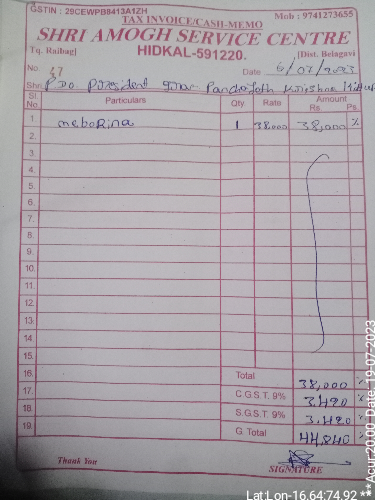 GSTIN : 29CEWPB8413A1ZH Mob : 9741273655
TAX INVOICE/CASH-MEMO
SHRI AMOGH SERVICE CENTRE
Tq. Raibag] HIDKAL-591220. [Dist. Belagavi
No. 47 Date 6/07/2023
Shri PDO President Gram Panchayath
Sl. No. Particulars Qty Rate Amount Rs. Ps.
1. 1 38,000 38,000
2.
3.
4.
5.
6.
7.
8.
9.
10.
11.
12.
13.
14.
15.
16. Total 38,000
17. C.G.S.T. 9% 3,420
18. S.G.S.T. 9% 3,420
19. G. Total 44,840
Thank You SIGNATURE
Lat:Lon-16.64:74.92 ** Acur 20.00 Date. 19-07-2023